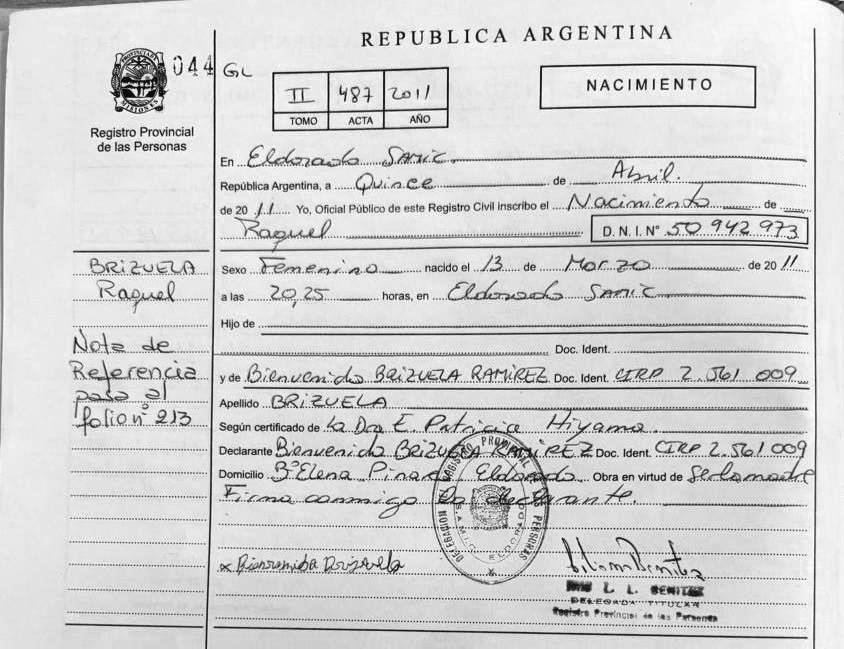 REPUBLICA ARGENTINA
PROVINCIA DE MISIONES
044 GL
Registro Provincial
de las Personas
II 487 2011
TOMO ACTA AÑO
NACIMIENTO
En Eldorado SAMIC.
República Argentina, a Quince de Abril.
de 2011 Yo, Oficial Público de este Registro Civil inscribo el Nacimiento de
Raquel D.N.I. N° 50 942 973
Sexo Femenino nacido el 13 de Marzo de 2011
a las 20,25 horas, en Eldorado SAMIC
Hijo de
Doc. Ident.
y de Bienvenida BRIZUELA RAMIREZ Doc. Ident. CIRP 2.561 009
Apellido BRIZUELA
Según certificado de La Dra E. Patricia Hiyama.
Declarante Bienvenida BRIZUELA RAMIREZ Doc. Ident. CIRP 2.561 009
Domicilio B° Elena Pinar Eldorado Obra en virtud de Ser la madre
Firma conmigo La declarante.
BRIZUELA
Raquel
Nota de
Referencia
pasa al
folio n° 213
DELEGACION DEL REGISTRO PROVINCIAL DE LAS PERSONAS
S.A.M.I.C. ELDORADO
x Bienvenida Brizuela
L. L. BENITEZ
DELEGADA TITULAR
Registro Provincial de las Personas